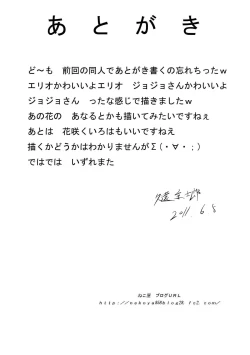 あとがき
ど～も　前回の同人であとがき書くの忘れちったｗ
エリオかわいいよエリオ　ジョジョさんかわいいよ
ジョジョさん　ったな感じで描きましたｗ
あの花の　あなるとかも描いてみたいですねぇ
あとは　花咲くいろはもいいですねえ
描くかどうかはわかりませんがΣ(・∀・；)
ではでは　いずれまた
2011. 6. 8
ねこ屋　ブログＵＲＬ